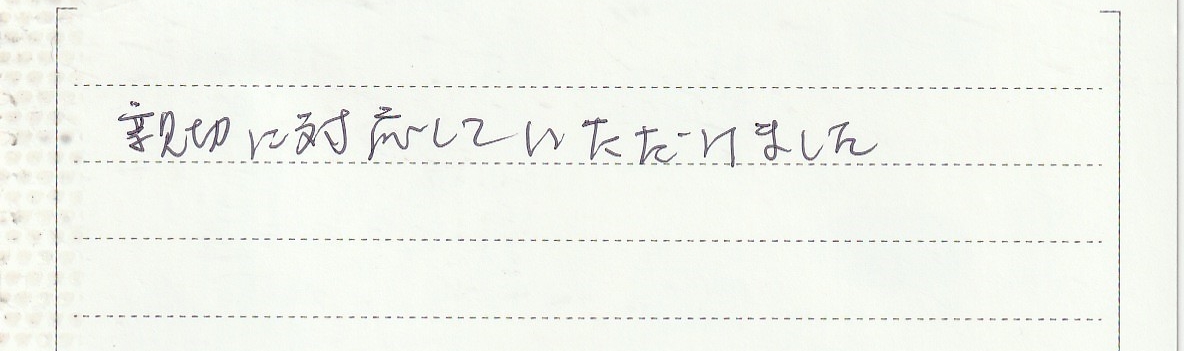 親切に対応していただけました